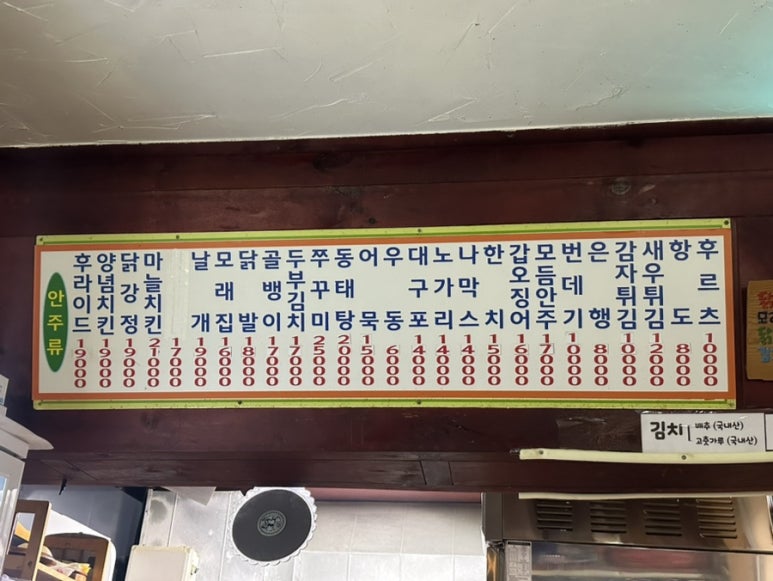 안주류
후라이드 19000
양념치킨 19000
닭강정 19000
마늘치킨 21000
17000
날개 19000
모래집 16000
닭발 18000
골뱅이 17000
두부김치 17000
쭈꾸미 25000
동태탕 20000
어묵 15000
우동 6000
대구포 14000
노가리 14000
나막스 14000
한치 15000
갑오징어 16000
모듬안주 17000
번데기 10000
은행 8000
감자튀김 10000
새우튀김 12000
황도 8000
후르츠 10000
김치 배추 (국내산)
고춧가루 (국내산)